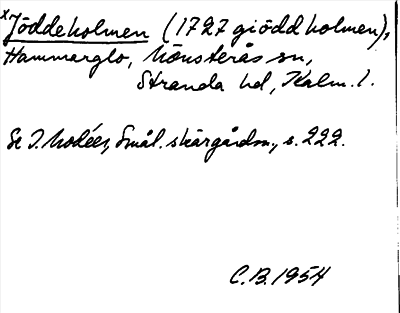 x Jöddeholmen (1727 giödd holmen),
Hammarglo, Mönsterås sn,
Stranda hd, Kalm. l.
Se I. Modéer, Smål. skärgårdsn., s. 222.
C.B. 1954